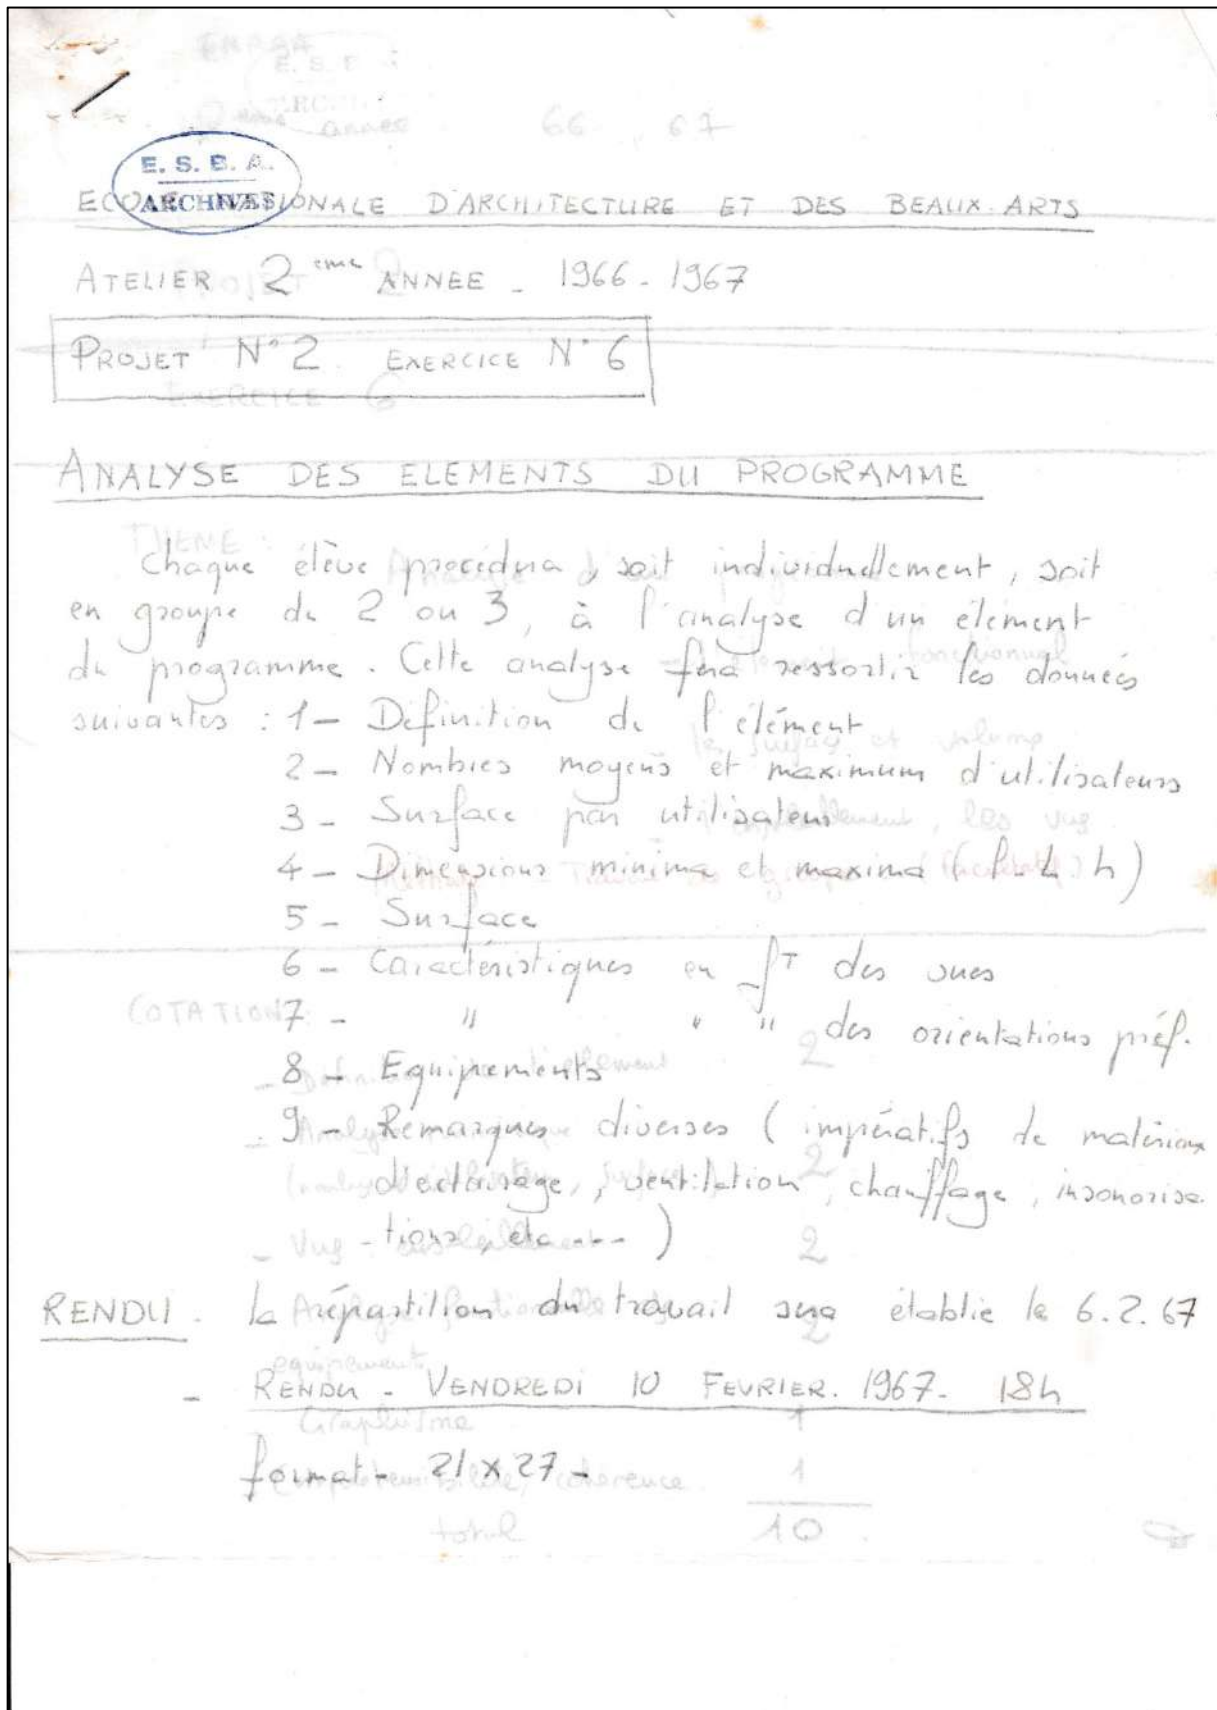 E. S. B. A.
ARCHIVES
ECOLE NATIONALE D'ARCHITECTURE ET DES BEAUX-ARTS
ATELIER 2ème ANNEE - 1966-1967
PROJET N°2 EXERCICE N°6
ANALYSE DES ELEMENTS DU PROGRAMME
Chaque élève procédera, soit individuellement, soit
en groupe de 2 ou 3, à l'analyse d'un élément
du programme. Cette analyse fera ressortir les données
suivantes : 1- Définition de l'élément
2- Nombres moyens et maximum d'utilisateurs
3- Surface par utilisateur
4- Dimensions minima et maxima (l- L h)
5- Surface
6- Caractéristiques en fT des vues
7- " " " des orientations préf.
8- Equipements
9- Remarques diverses (impératifs de matériaux
d'éclairage, ventilation, chauffage, insonorisa
-tions, etc---)
RENDU. la répartition du travail sera établie le 6.2.67
- RENDU - VENDREDI 10 FEVRIER. 1967- 18h
format- 21x27-
66 67
THEME :
COTATION :
equipement
Graphisme
coherence
total
2
2
2
2
1
1
10